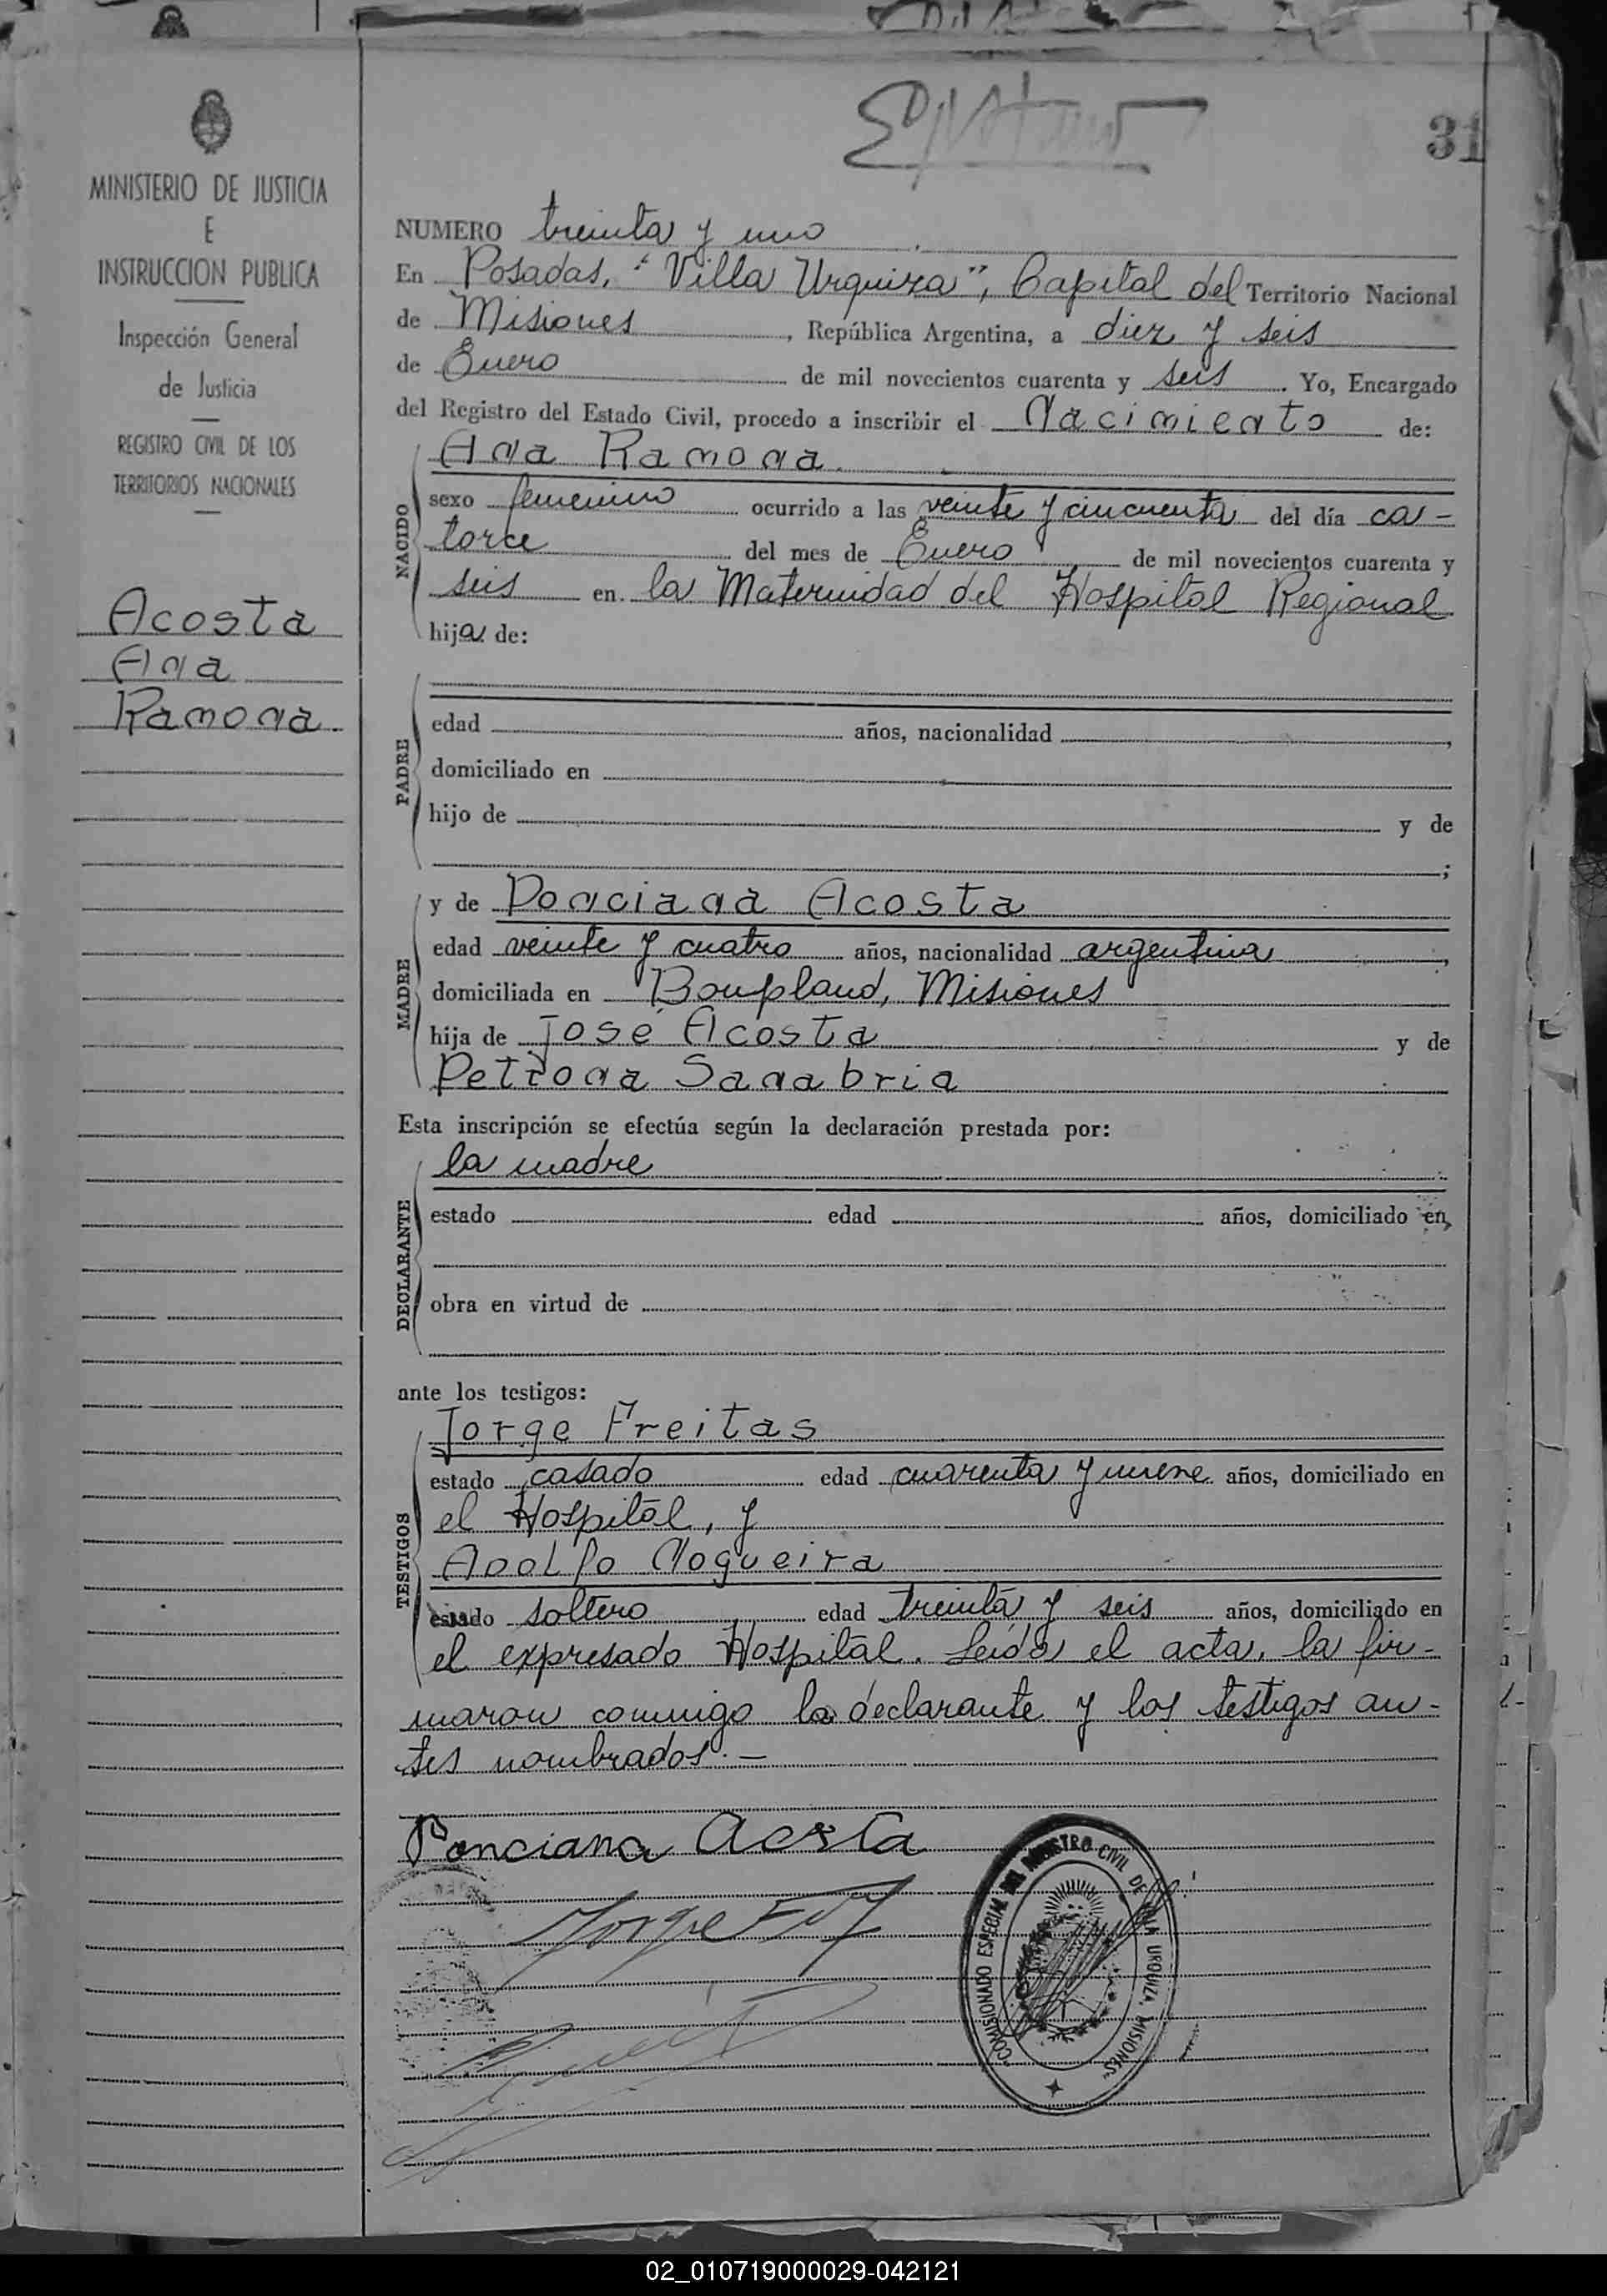 31
MINISTERIO DE JUSTICIA
E
INSTRUCCION PUBLICA
Inspección General
de Justicia
REGISTRO CIVIL DE LOS
TERRITORIOS NACIONALES
Acosta
Ana
Ramona.
NUMERO treinta y uno
En Posadas, "Villa Urquiza", Capital del Territorio Nacional
de Misiones, República Argentina, a diez y seis
de Enero de mil novecientos cuarenta y seis. Yo, Encargado
del Registro del Estado Civil, procedo a inscribir el Nacimiento de:
Ana Ramona.
NACIDO
sexo femenino ocurrido a las veinte y cincuenta del día ca-
torce del mes de Enero de mil novecientos cuarenta y
seis en la Maternidad del Hospital Regional
hija de:
PADRE
edad años, nacionalidad ,
domiciliado en
hijo de y de
;
MADRE
y de Ponciana Acosta
edad veinte y cuatro años, nacionalidad argentina,
domiciliada en Bonpland, Misiones
hija de José Acosta y de
Petrona Sanabria
Esta inscripción se efectúa según la declaración prestada por:
DECLARANTE
la madre
estado edad años, domiciliado en,
obra en virtud de
ante los testigos:
TESTIGOS
Jorge Freitas
estado casado edad cuarenta y nueve años, domiciliado en
el Hospital, y
Adolfo Nogueira
estado soltero edad treinta y seis años, domiciliado en
el expresado Hospital. Leída el acta, la fir-
maron conmigo la declarante y los testigos an-
tes nombrados.-
Ponciana Acosta
Jorge
COMISIONADO ESPECIAL DEL REGISTRO CIVIL DE VILLA URQUIZA, MISIONES
02_010719000029-042121